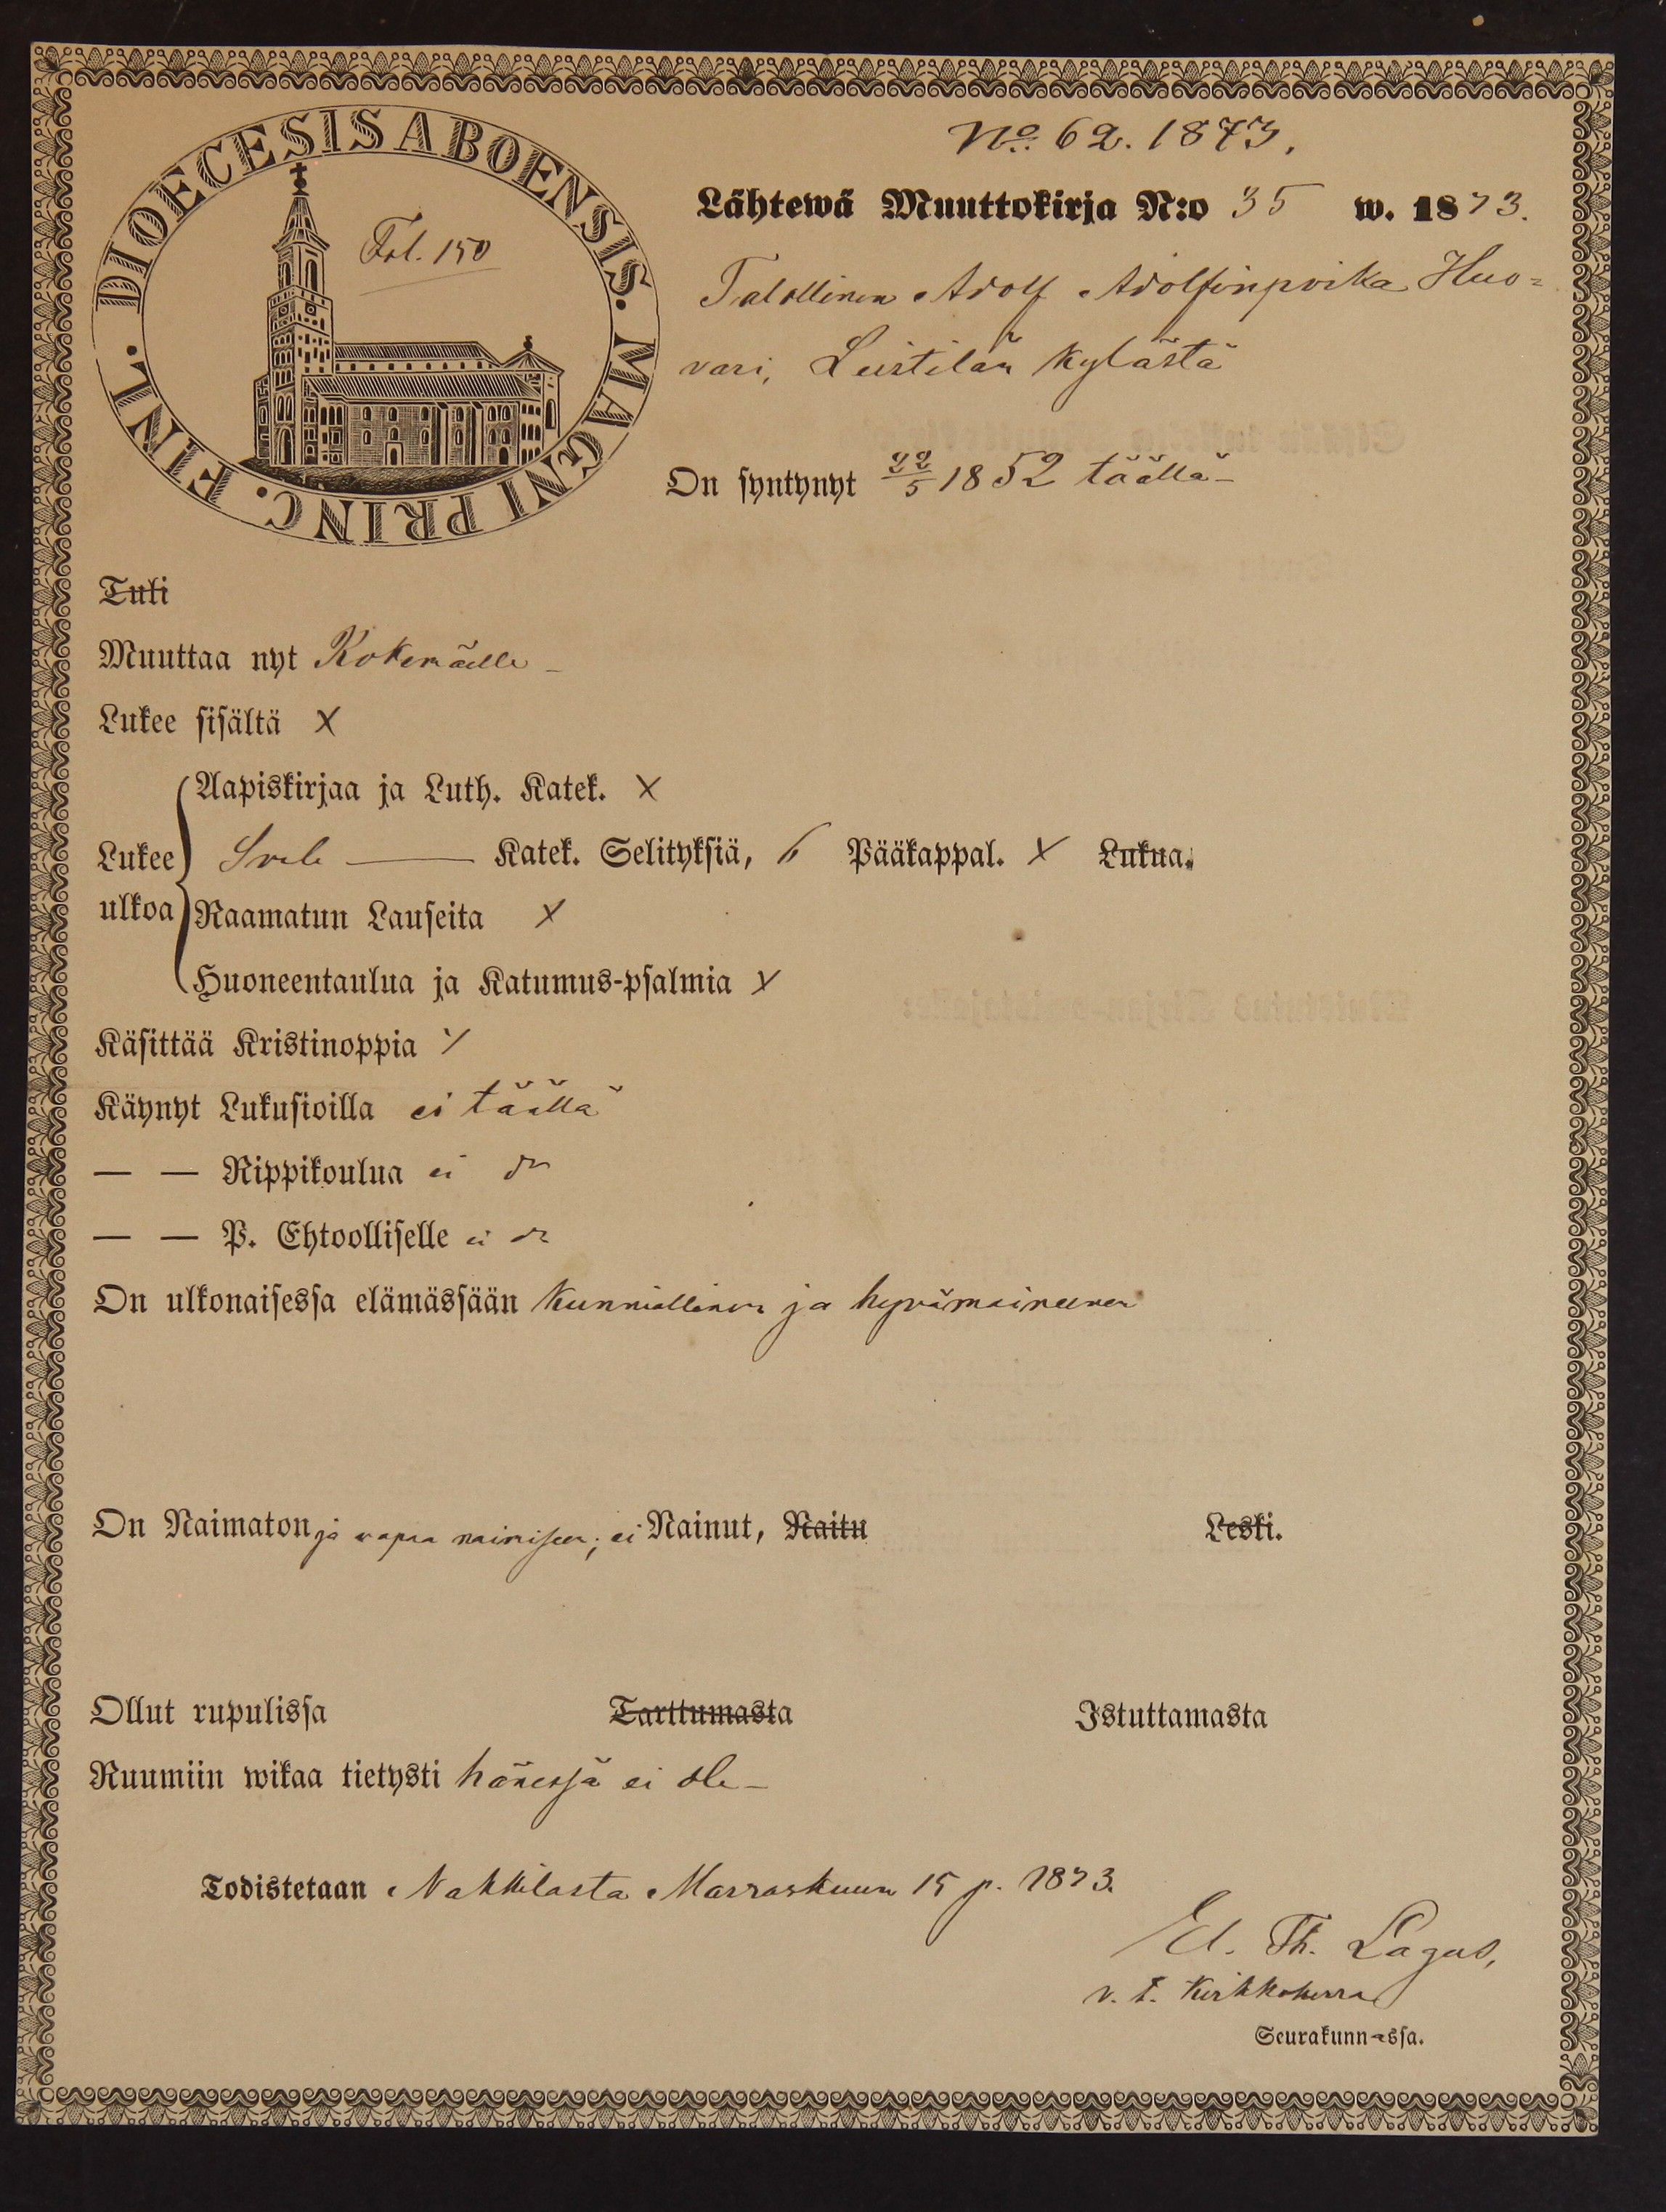 DIOECESIS ABOENSIS. MAGNI PRINC. FINL.
Fol. 150
No. 62. 1873.
Lähtewä Muuttokirja N:o 35 w. 1873.
Talollinen Adolf Adolfinpoika Huo=
vari, Leistilän kylästä
On syntynyt 22/5 1852 täällä -
Tuli
Muuttaa nyt Kokemäelle -
Lukee sisältä X
Aapiskirjaa ja Luth. Katek. X
Lukee Sveb — Katek. Selityksiä, 6 Pääkappal. X Lukua.
ulkoa Raamatun Lauseita X
Huoneentaulua ja Katumus-psalmia X
Käsittää Kristinoppia
Käynyt Lukusioilla ei täällä
— — Rippikoulua ei do
— — P. Ehtoolliselle ei do
On ulkonaisessa elämässään kunniallinen ja hyvämaineinen
On Naimaton ja vapaa naimiseen; ei Nainut, Naitu Leski.
Ollut rupulissa Tarttumasta Istuttamasta
Ruumiin wikaa tietysti hänessä ei ole -
Todistetaan Nakkilasta Marraskuun 15 p. 1873.
Th. Lagus,
v. t. Kirkkoherra
Seurakunn-ssa.